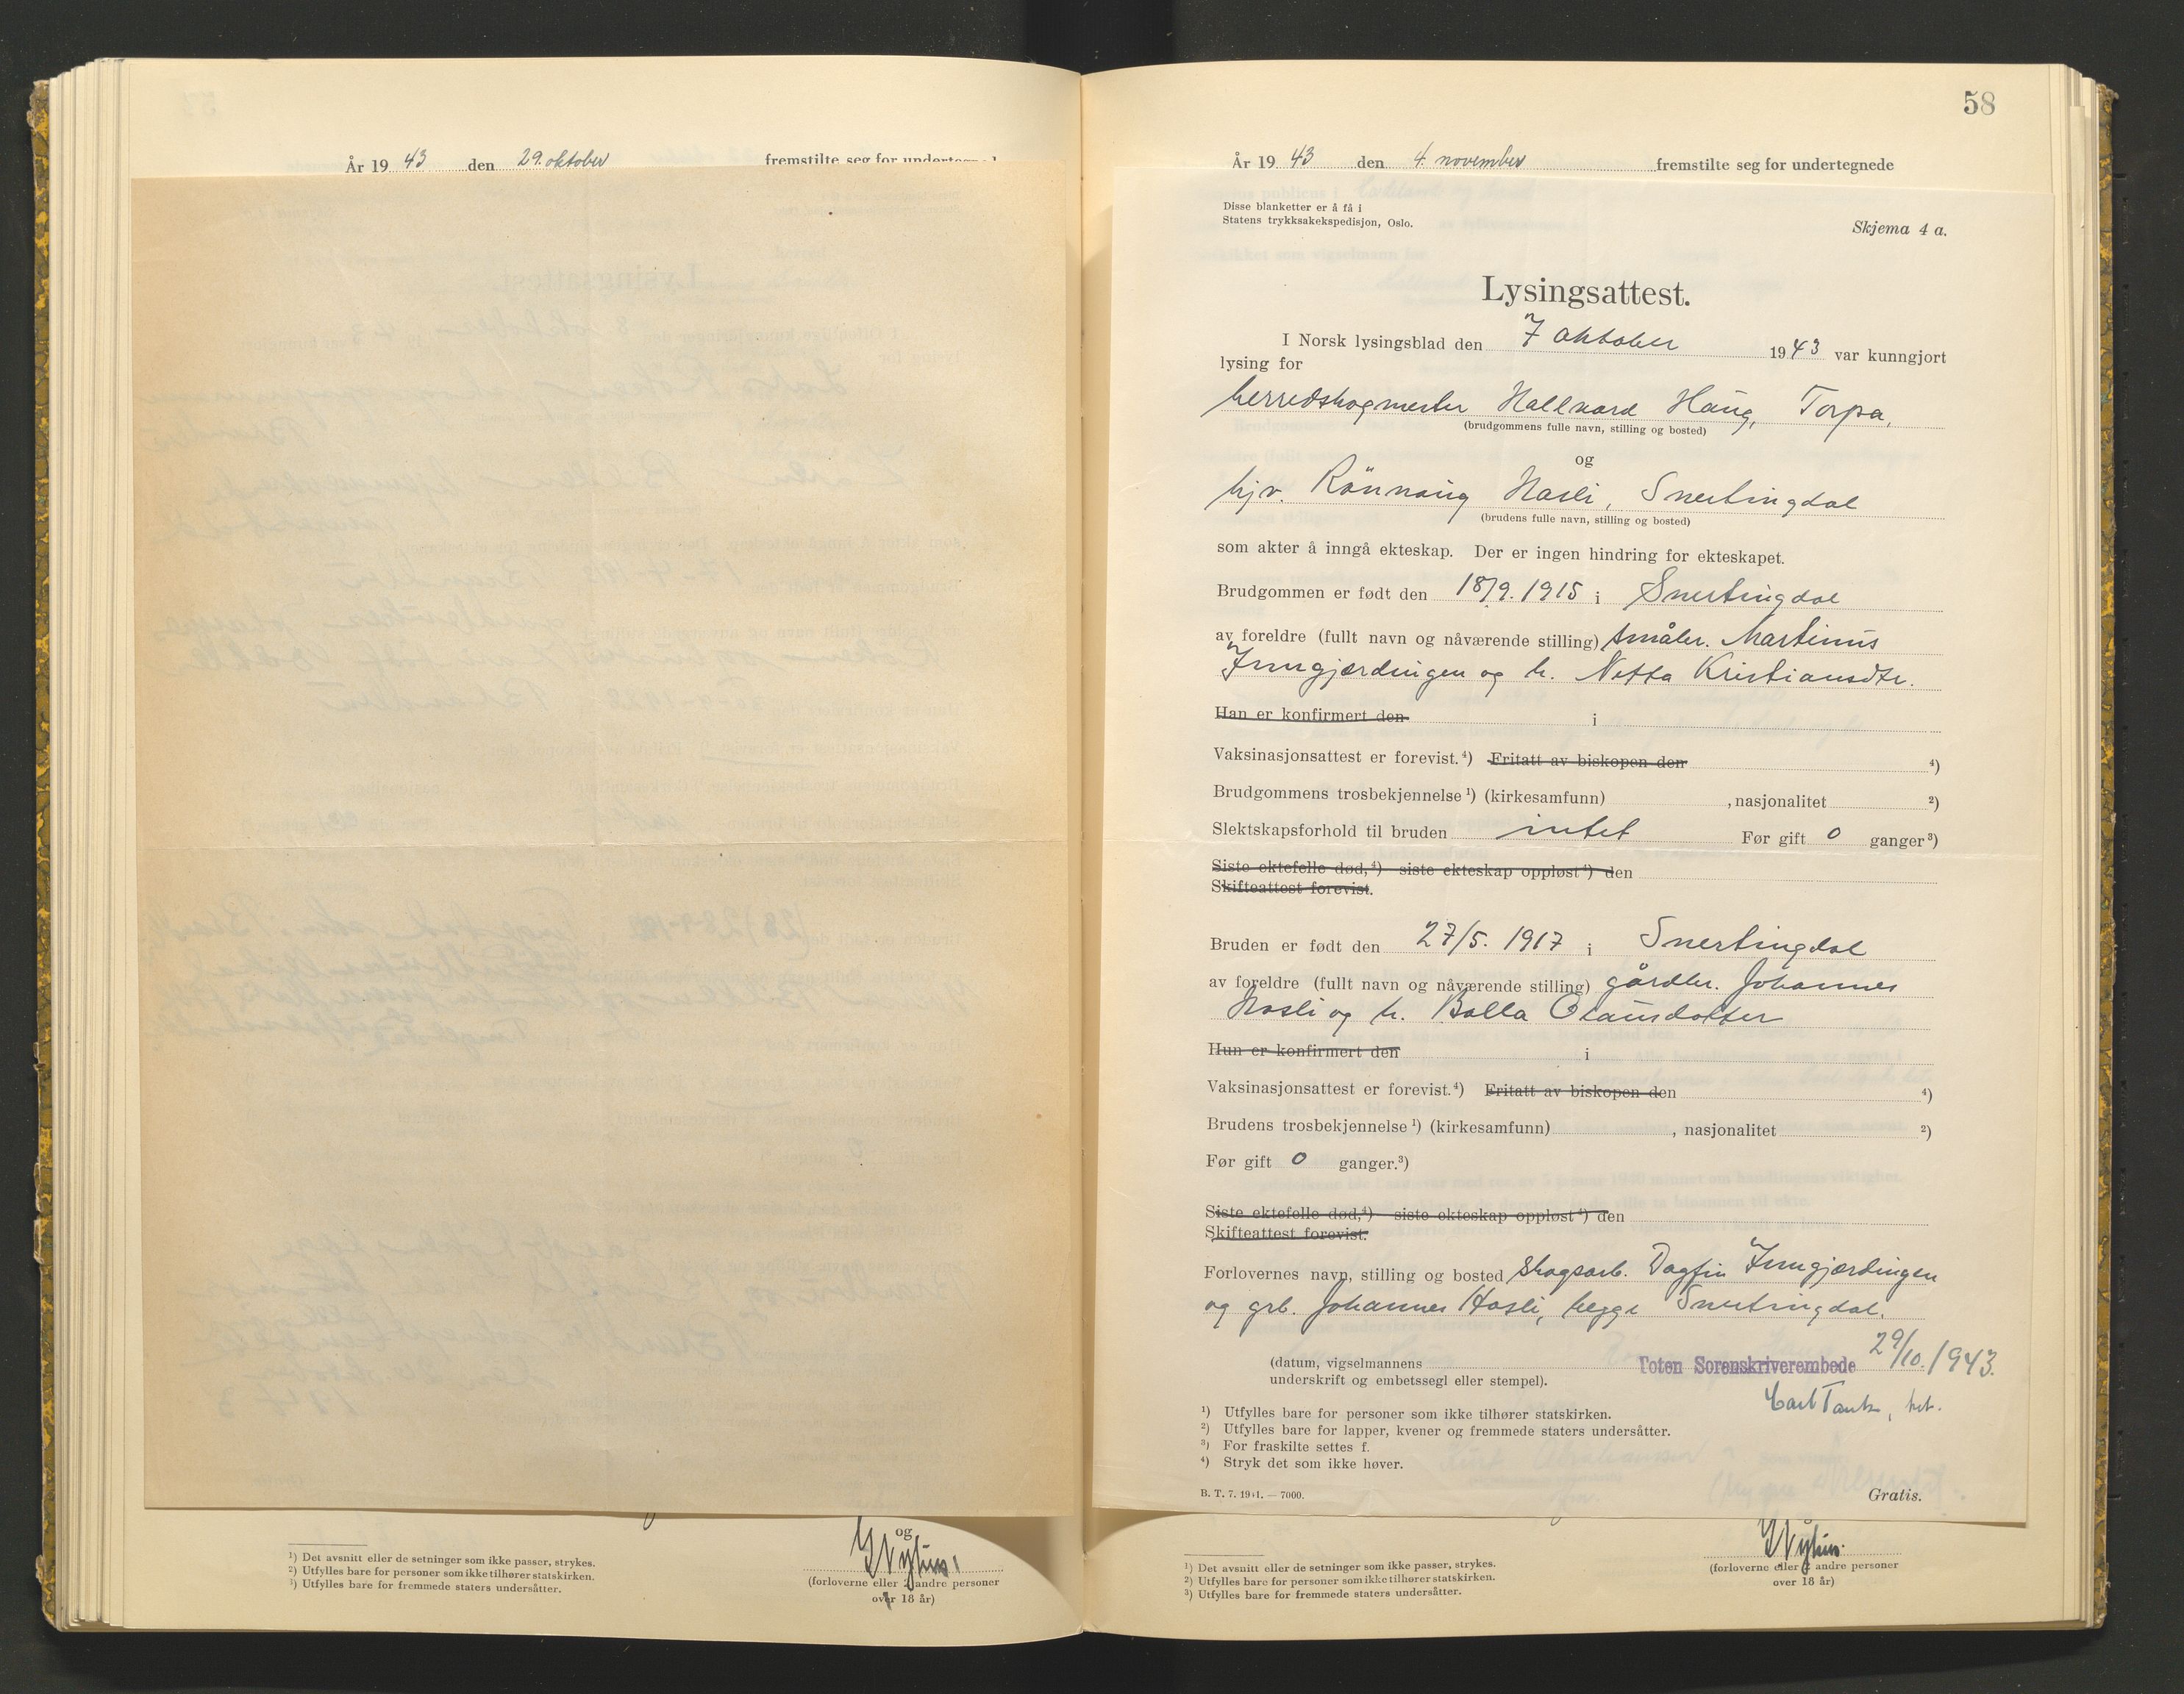 År 19 43 den 29. oktober fremstilte seg for
og
1) Det avsnitt eller de setninger som ikke passer, strykes.
2) Utfylles bare for personer som ikke tilhører statskirken.
3) Utfylles bare for fremmede staters undersåtter.
(forloverne eller 2 andre personer
over 18 år)
58
År 19 43 den 4. november fremstilte seg for undertegnede
Disse blanketter er å få i
Statens trykksakekspedisjon, Oslo.
Skjema 4 a.
Lysingsattest.
I Norsk lysingsblad den 7 oktober 1943 var kunngjort
lysing for
herredskogmester Hallvard Haug, Torpa,
(brudgommens fulle navn, stilling og bosted)
og
hjv. Rönnaug Hasli, Snertingdal
(brudens fulle navn, stilling og bosted)
som akter å inngå ekteskap. Der er ingen hindring for ekteskapet.
Brudgommen er født den 18/9. 1915 i Snertingdal
av foreldre (fullt navn og nåværende stilling) småbr. Martinus
Inngjærdingen og h. Netta Kristiansdtr.
Han er konfirmert den i
Vaksinasjonsattest er forevist.4) Fritatt av biskopen den 4)
Brudgommens trosbekjennelse 1) (kirkesamfunn) , nasjonalitet 2)
Slektskapsforhold til bruden intet Før gift 0 ganger 3)
Siste ektefelle død,4) siste ekteskap oppløst 4) den
Skifteattest forevist.
Bruden er født den 27/5. 1917 i Snertingdal
av foreldre (fullt navn og nåværende stilling) gårdbr. Johannes
Hasli og h. Balla Olausdotter
Hun er konfirmert den i
Vaksinasjonsattest er forevist.4) Fritatt av biskopen den 4)
Brudens trosbekjennelse 1) (kirkesamfunn) , nasjonalitet 2)
Før gift 0 ganger.3)
Siste ektefelle død,4) siste ekteskap oppløst 4) den
Skifteattest forevist.
Forlovernes navn, stilling og bosted skogsarb. Dagfin Inngjærdingen
og grb. Johannes Hasli, begge Snertingdal.
(datum, vigselmannens Toten Sorenskriverembede 29/10. 1943.
underskrift og embetssegl eller stempel).
1) Utfylles bare for personer som ikke tilhører statskirken.
2) Utfylles bare for lapper, kvener og fremmede staters undersåtter.
3) For fraskilte settes f.
4) Stryk det som ikke høver.
B. T. 7. 1941. — 7000.
Gratis.
1) Det avsnitt eller de setninger som ikke passer, strykes.
2) Utfylles bare for personer som ikke tilhører statskirken.
3) Utfylles bare for fremmede staters undersåtter.
(forloverne eller 2 andre personer
over 18 år)